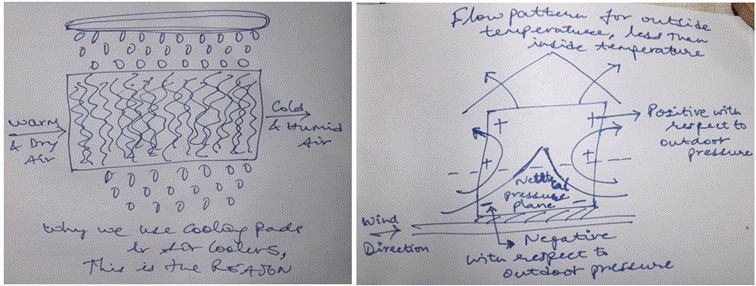 Warm
& Dry
Air
Cold
& Humid
Air
Why we use cooling pads
in Air coolers,
This is the REASON
Flow pattern for outside
temperature, less than
inside temperature
Positive with
respect to
outdoor
pressure
Neutral
pressure
plane
Wind
Direction
Negative
with respect to
outdoor pressure